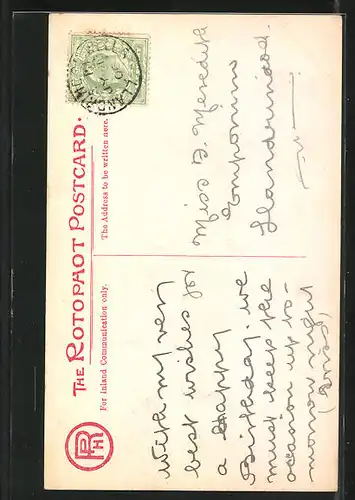 THE ROTOPHOT POSTCARD.
For Inland Communication only.
The Address to be written here.
RPH
With my very
best wishes for
a Happy
Birthday. we
must keep the
occasion up to-
morrow night
Miss G. Meredith
Emporium
Llandrindod.
LLANDRINDOD WELLS